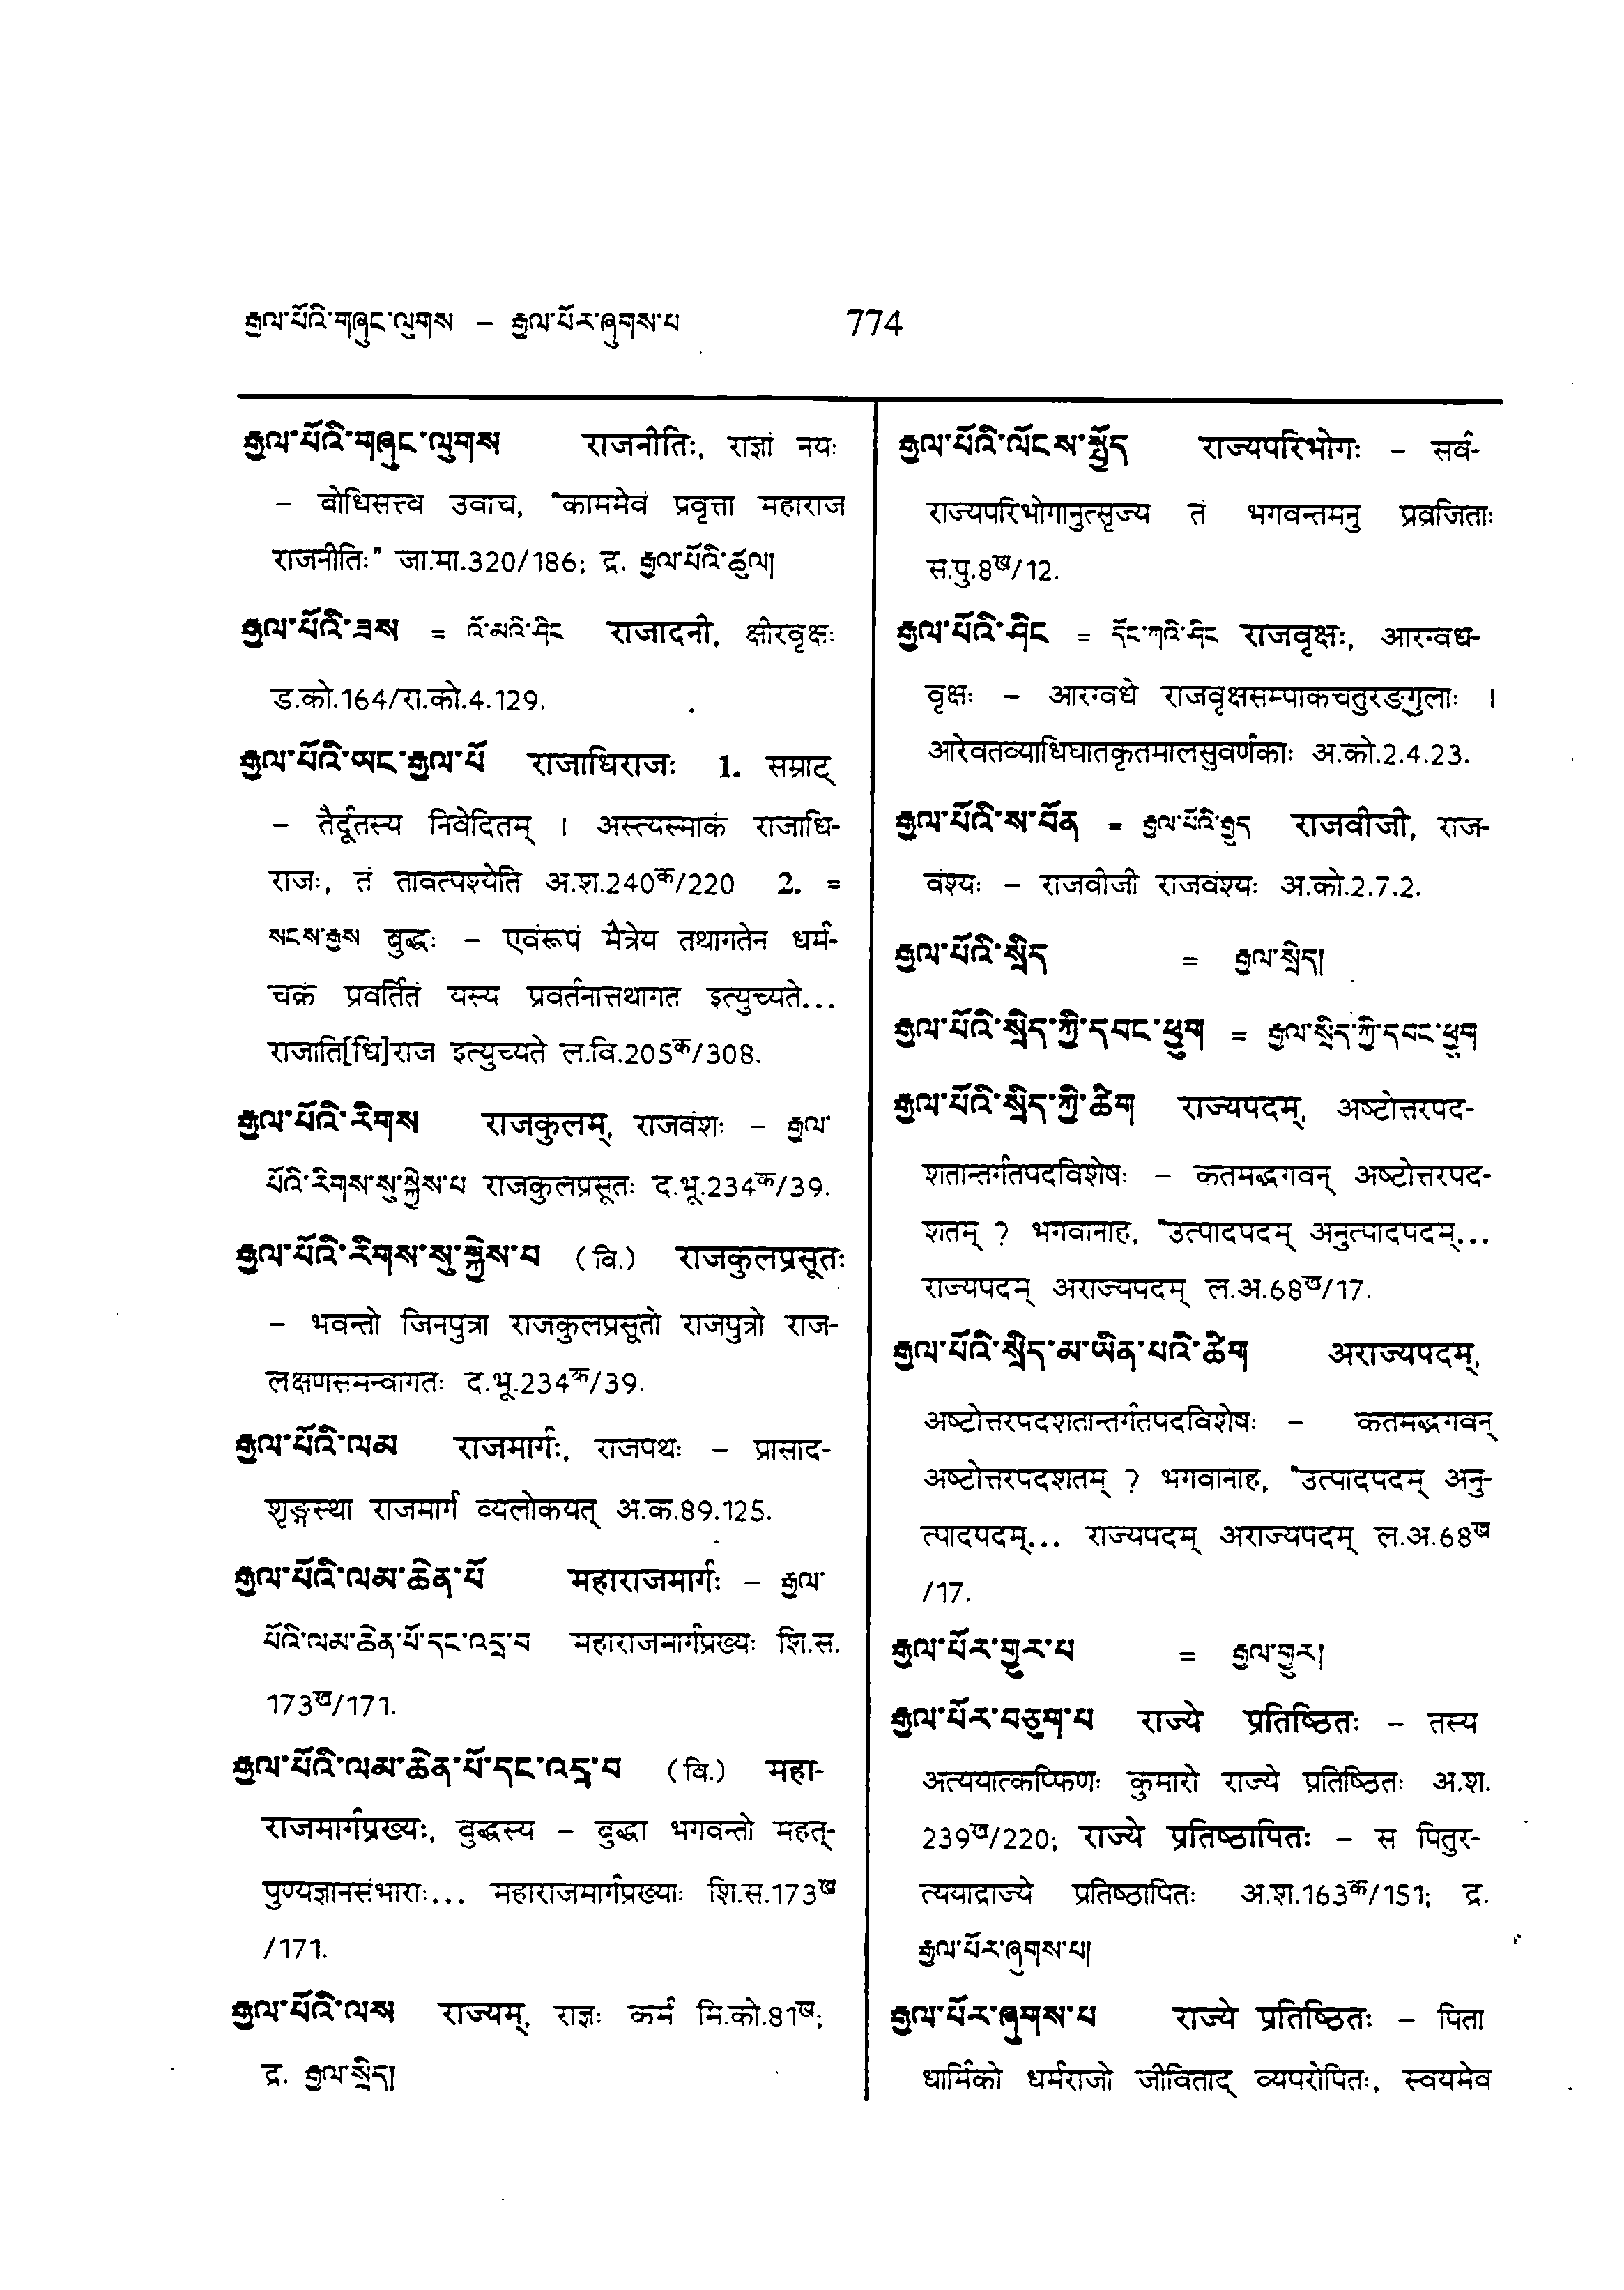 རྒྱལ་པོའི་གཞུང་ལུགས – རྒྱལ་པོར་ཞུགས་པ 774
རྒྱལ་པོའི་གཞུང་ལུགས राजनीतिः, राज्ञां नयः
– बोधिसत्त्व उवाच, "काममेवं प्रवृत्ता महाराज
राजनीतिः" जा.मा.320/186; द्र. རྒྱལ་པོའི་ཚུལ།
རྒྱལ་པོའི་ཟས = འོ་མའི་ཤིང राजादनी, क्षीरवृक्षः
ड.को.164/रा.को.4.129.
རྒྱལ་པོའི་ཡང་རྒྱལ་པོ राजाधिराजः 1. सम्राट्
– तैर्दूतस्य निवेदितम् । अस्त्यस्माकं राजाधि-
राजः, तं तावत्पश्येति अ.श.240क/220 2. =
སངས་རྒྱས बुद्धः – एवंरूपं मैत्रेय तथागतेन धर्म-
चक्रं प्रवर्तितं यस्य प्रवर्तनात्तथागत इत्युच्यते...
राजाति[धि]राज इत्युच्यते ल.वि.205क/308.
རྒྱལ་པོའི་རིགས राजकुलम्, राजवंशः – རྒྱལ་
པོའི་རིགས་སུ་སྐྱེས་པ राजकुलप्रसूतः द.भू.234क/39.
རྒྱལ་པོའི་རིགས་སུ་སྐྱེས་པ (वि.) राजकुलप्रसूतः
– भवन्तो जिनपुत्रा राजकुलप्रसूतो राजपुत्रो राज-
लक्षणसमन्वागतः द.भू.234क/39.
རྒྱལ་པོའི་ལམ राजमार्गः, राजपथः – प्रासाद-
शृङ्गस्था राजमार्गं व्यलोकयत् अ.क.89.125.
རྒྱལ་པོའི་ལམ་ཆེན་པོ महाराजमार्गः – རྒྱལ་
པོའི་ལམ་ཆེན་པོ་དང་འདྲ་བ महाराजमार्गप्रख्यः शि.स.
173ख/171.
རྒྱལ་པོའི་ལམ་ཆེན་པོ་དང་འདྲ་བ (वि.) महा-
राजमार्गप्रख्यः, बुद्धस्य – बुद्धा भगवन्तो महत्-
पुण्यज्ञानसंभाराः... महाराजमार्गप्रख्याः शि.स.173ख
/171.
རྒྱལ་པོའི་ལས राज्यम्, राज्ञः कर्म मि.को.81ख;
द्र. རྒྱལ་སྲིད།
རྒྱལ་པོའི་ལོངས་སྤྱོད राज्यपरिभोगः – सर्व-
राज्यपरिभोगानुत्सृज्य तं भगवन्तमनु प्रव्रजिताः
स.पु.8ख/12.
རྒྱལ་པོའི་ཤིང = དོང་ཀའི་ཤིང राजवृक्षः, आरग्वध-
वृक्षः – आरग्वधे राजवृक्षसम्पाकचतुरङ्गुलाः ।
आरेवतव्याधिघातकृतमालसुवर्णकाः अ.को.2.4.23.
རྒྱལ་པོའི་ས་བོན = རྒྱལ་པོའི་བྲུད राजवीजी, राज-
वंश्यः – राजवीजी राजवंश्यः अ.को.2.7.2.
རྒྱལ་པོའི་སྲིད = རྒྱལ་སྲིད།
རྒྱལ་པོའི་སྲིད་ཀྱི་དབང་ཕྱུག = རྒྱལ་སྲིད་ཀྱི་དབང་ཕྱུག
རྒྱལ་པོའི་སྲིད་ཀྱི་ཚིག राज्यपदम्, अष्टोत्तरपद-
शतान्तर्गतपदविशेषः – कतमद्भगवन् अष्टोत्तरपद-
शतम् ? भगवानाह, "उत्पादपदम् अनुत्पादपदम्...
राज्यपदम् अराज्यपदम् ल.अ.68ख/17.
རྒྱལ་པོའི་སྲིད་མ་ཡིན་པའི་ཚིག अराज्यपदम्,
अष्टोत्तरपदशतान्तर्गतपदविशेषः – कतमद्भगवन्
अष्टोत्तरपदशतम् ? भगवानाह, "उत्पादपदम् अनु-
त्पादपदम्... राज्यपदम् अराज्यपदम् ल.अ.68ख
/17.
རྒྱལ་པོར་གྱུར་པ = རྒྱལ་གྱུར།
རྒྱལ་པོར་བཅུག་པ राज्ये प्रतिष्ठितः – तस्य
अत्ययात्कप्फिणः कुमारो राज्ये प्रतिष्ठितः अ.श.
239ख/220; राज्ये प्रतिष्ठापितः – स पितुर-
त्ययाद्राज्ये प्रतिष्ठापितः अ.श.163क/151; द्र.
རྒྱལ་པོར་ཞུགས་པ།
རྒྱལ་པོར་ཞུགས་པ राज्ये प्रतिष्ठितः – पिता
धार्मिको धर्मराजो जीविताद् व्यपरोपितः, स्वयमेव